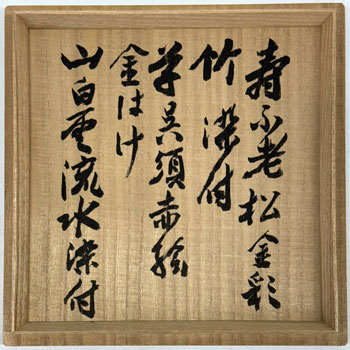 寿不老松金彩
竹染付
草呉須赤絵
金はけ
山白雲流水染付